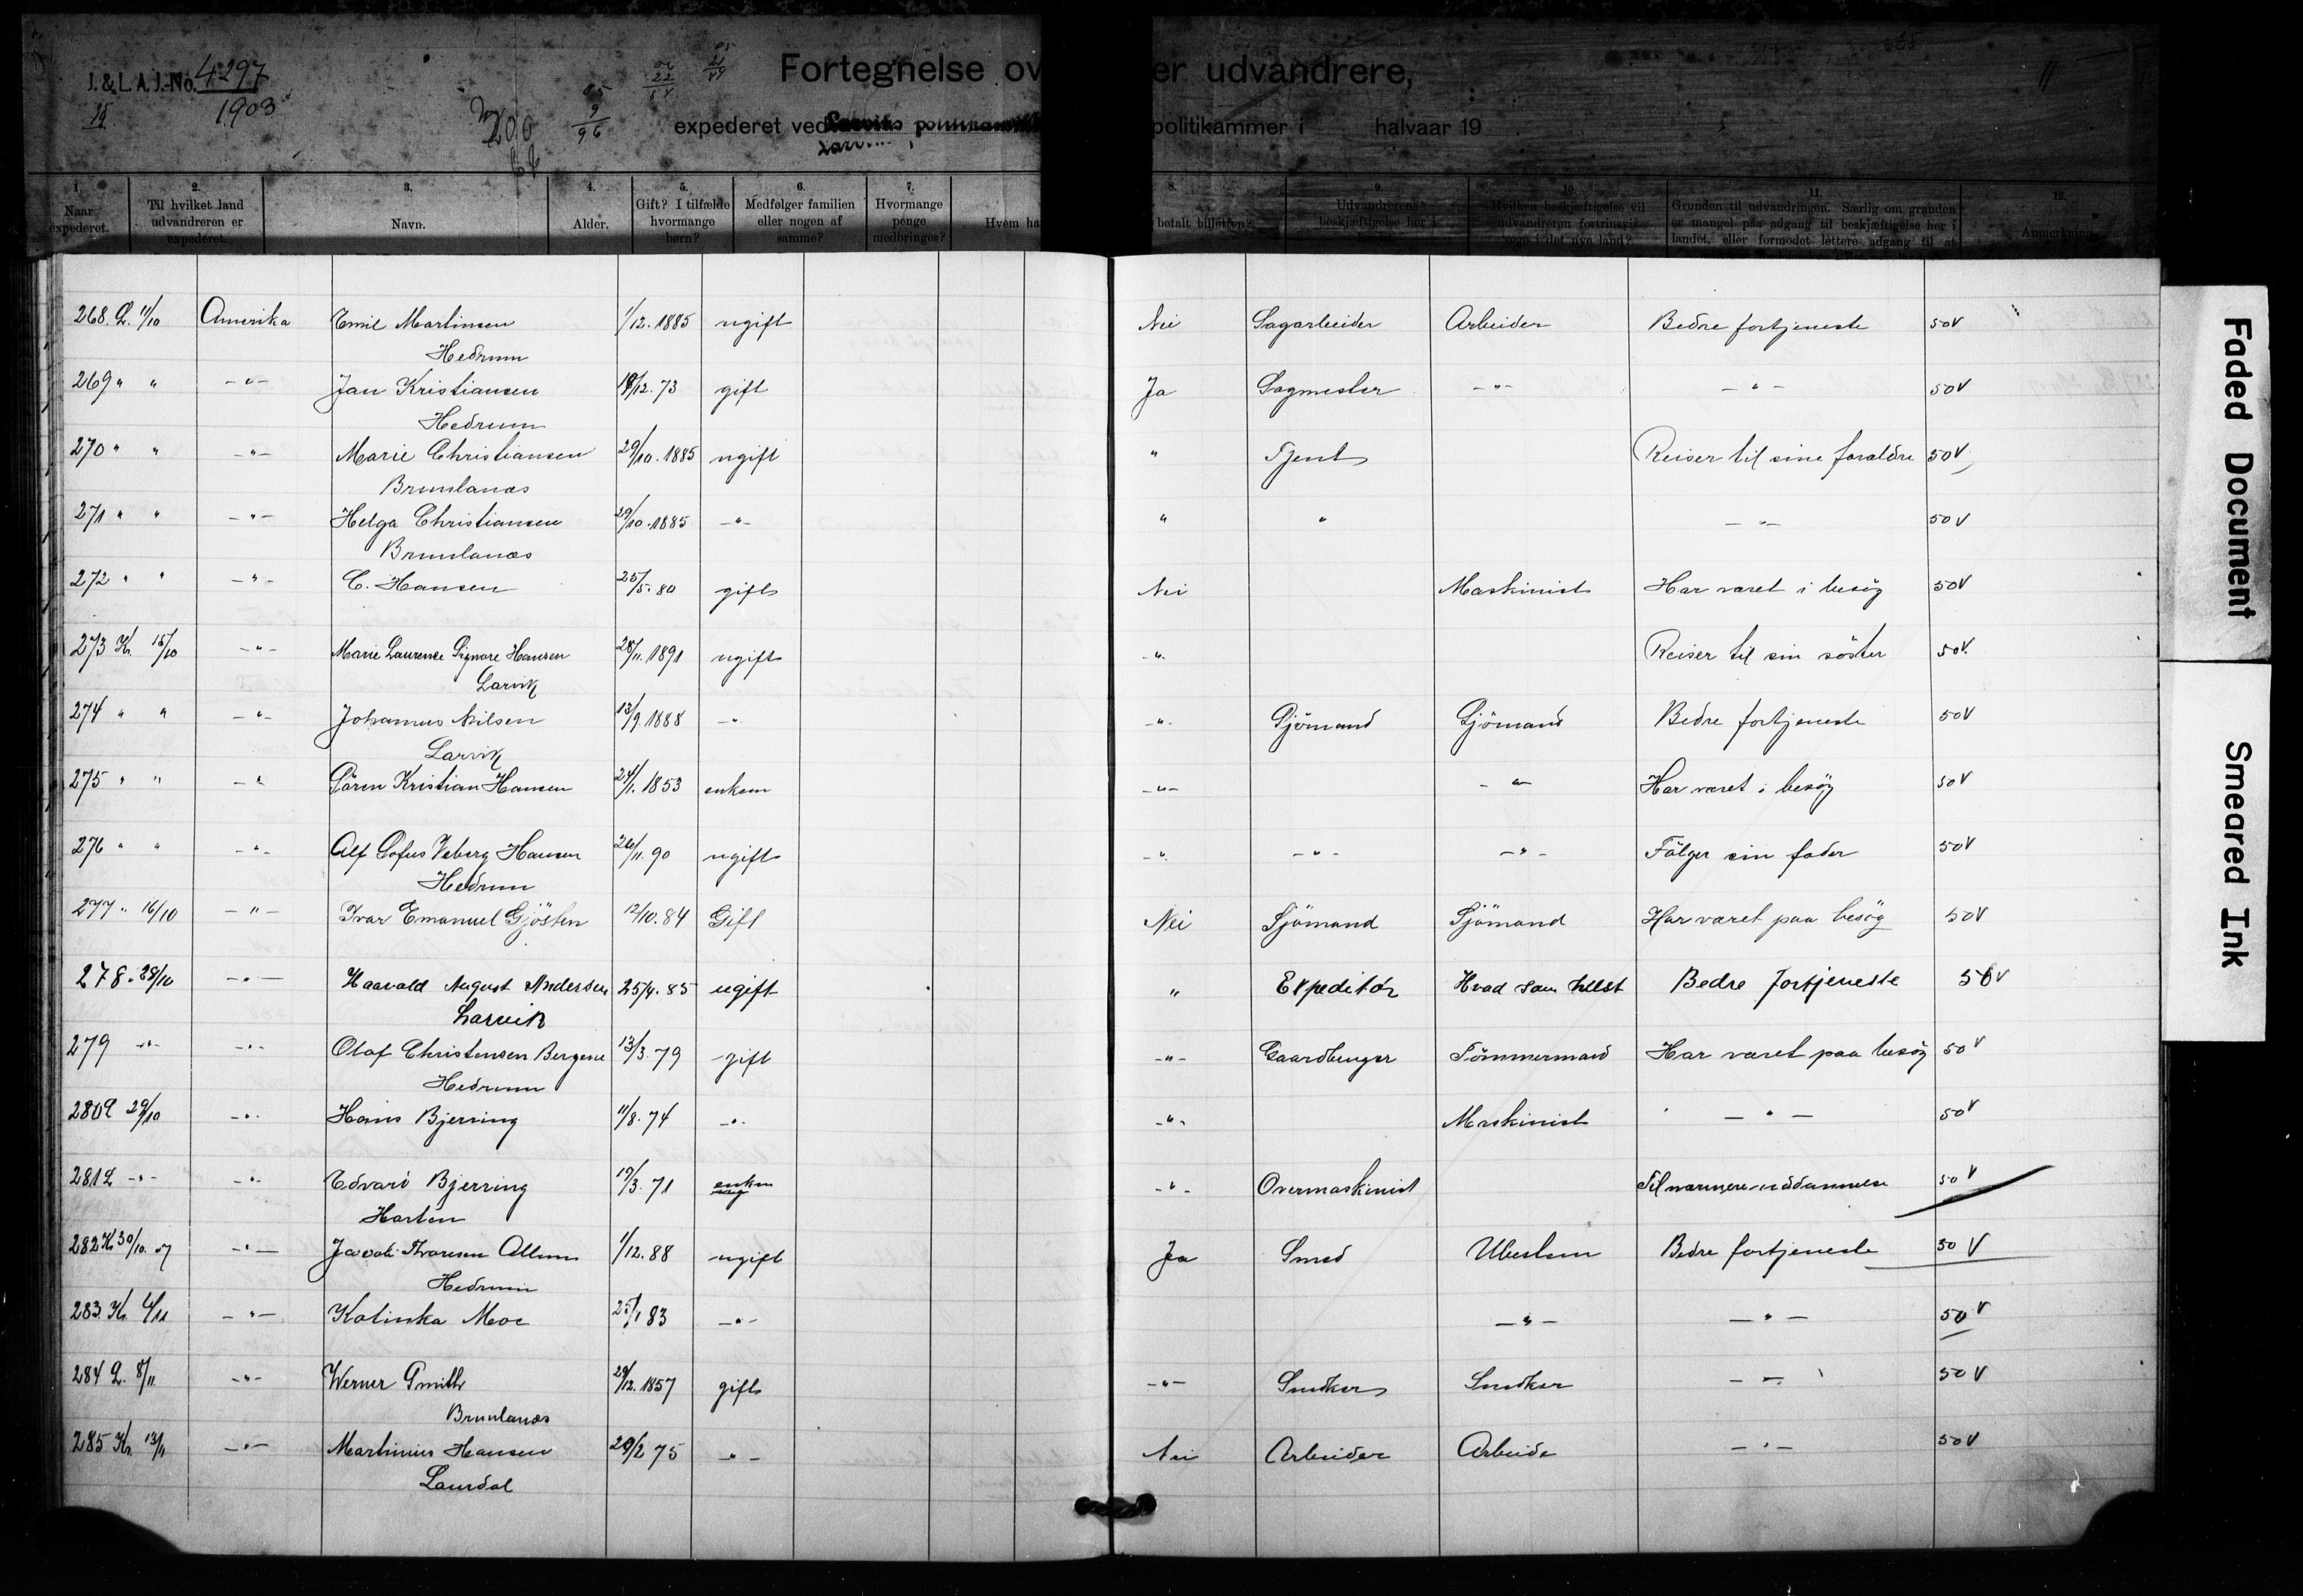 J. & L. A. J.-No. 4297
1903
Fortegnelse ov er udvandrere,
200
9/96
expederet ved Larviks politikammer i halvaar 19
1. Naar expederet. 2. Til hvilket land udvandreren er expederet. 3. Navn. 4. Alder. 5. Gift? I tilfælde hvormange børn? 6. Medfølger familien eller nogen af samme? 7. Hvormange penge medbringes? Hvem ha 8. betalt billetten? 9. Udvandrerens beskjæftigelse her i 10. Hvilken beskjæftigelse vil udvandreren fortrinsvis i det nye land? 11. Grunden til udvandringen. Særlig om grunden er mangel paa adgang til beskjæftigelse her i landet, eller formodet lettere adgang til at 12. Anmerkning.
268. L. 11/10 Amerika Emil Martinsen 1/12. 1885 ugift Nei Sagarbeider Arbeider Bedre fortjeneste 50 V
Hedrum
269 " " -"- Jan Kristiansen 18/12. 73 gift Ja Sagmester -"- -"- 50 V
Hedrum
270 " " -"- Marie Christiansen 29/10. 1885 ugift " Tjent Reiser til sine forældre 50 V
Brunlanæs
271 " " -"- Helga Christiansen 29/10. 1885 -"- " " -"- 50 V
Brunlanæs
272 " " -"- C. Hansen 25/5. 80 gift Nei Maskinist Har været i besøg 50 V
273 Kr. 15/10 -"- Marie Laurence Signore Hansen 28/11. 1891 ugift -"- Reiser til sin söster 50 V
Larvik
274 " " -"- Johannes Nilsen 13/9. 1888 -"- -"- Sjömand Sjömand Bedre fortjeneste 50 V
Larvik
275 " " -"- Sören Kristian Hansen 24/1. 1853 enkem -"- -"- Har været i besög 50 V
276 " " -"- Alf Sofus Veberg Hansen 26/11. 90 ugift -"- -"- -"- Fölger sin fader 50 V
Hedrum
277 " 16/10 -"- Ivar Emanuel Gjösten 12/10. 84 Gift Nei Sjömand Sjömand Har været paa besög 50 V
278 " 28/10 -"- Haavald August Andersen 25/4. 85 ugift " Expeditör Hvad som helst Bedre fortjeneste 50 V
Larvik
279 -"- -"- Olaf Christensen Bergene 13/3. 79 gift -"- Gaardbruger Tömmermand Har været paa besög 50 V
Hedrum
280 L 29/10 -"- Hans Bjerring 11/8. 74 -"- -"- Maskinist -"- 50 V
281 L -"- -"- Edvard Bjerring 19/3. 71 enkm -"- Overmaskinist Til nærmere uddannelse 50 V
Horten
282 Kr. 30/10. 07 -"- Jacob Thoresen Allum 1/12. 88 ugift Ja Smed Ubestem Bedre fortjeneste 50 V
Hedrum
283. Kr. 4/11 -"- Katinka Moe 25/1 83 -"- -"- -"- 50 V
284 L. 8/11. -"- Werner Smith 29/12. 1857 gift -"- Snedker Snedker -"- 50 V
Brunlanæs
285 Kr. 13/11 -"- Martinius Hansen 20/2 75 -"- Nei Arbeider Arbeide -"- 50 V
Laurdal
Faded Document
Smeared Ink